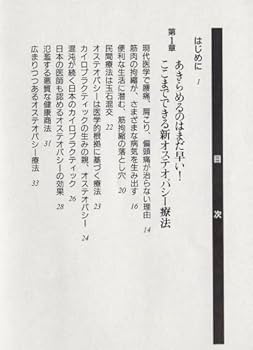 目次
はじめに 1
第1章 あきらめるのはまだ早い!
ここまでできる新オステオパシー療法
現代医学で腰痛、肩こり、偏頭痛が治らない理由 14
筋肉の拘縮が、さまざまな病気を生み出す 16
便利な生活に潜む、筋拘縮の落とし穴 20
民間療法は玉石混交 22
オステオパシーは医学的根拠に基づく療法 23
カイロプラクティックの生みの親、オステオパシー 24
混沌が続く日本のカイロプラクティック 26
日本の医師も認めるオステオパシーの効果 28
氾濫する悪質な健康商法 31
広まりつつあるオステオパシー療法 33